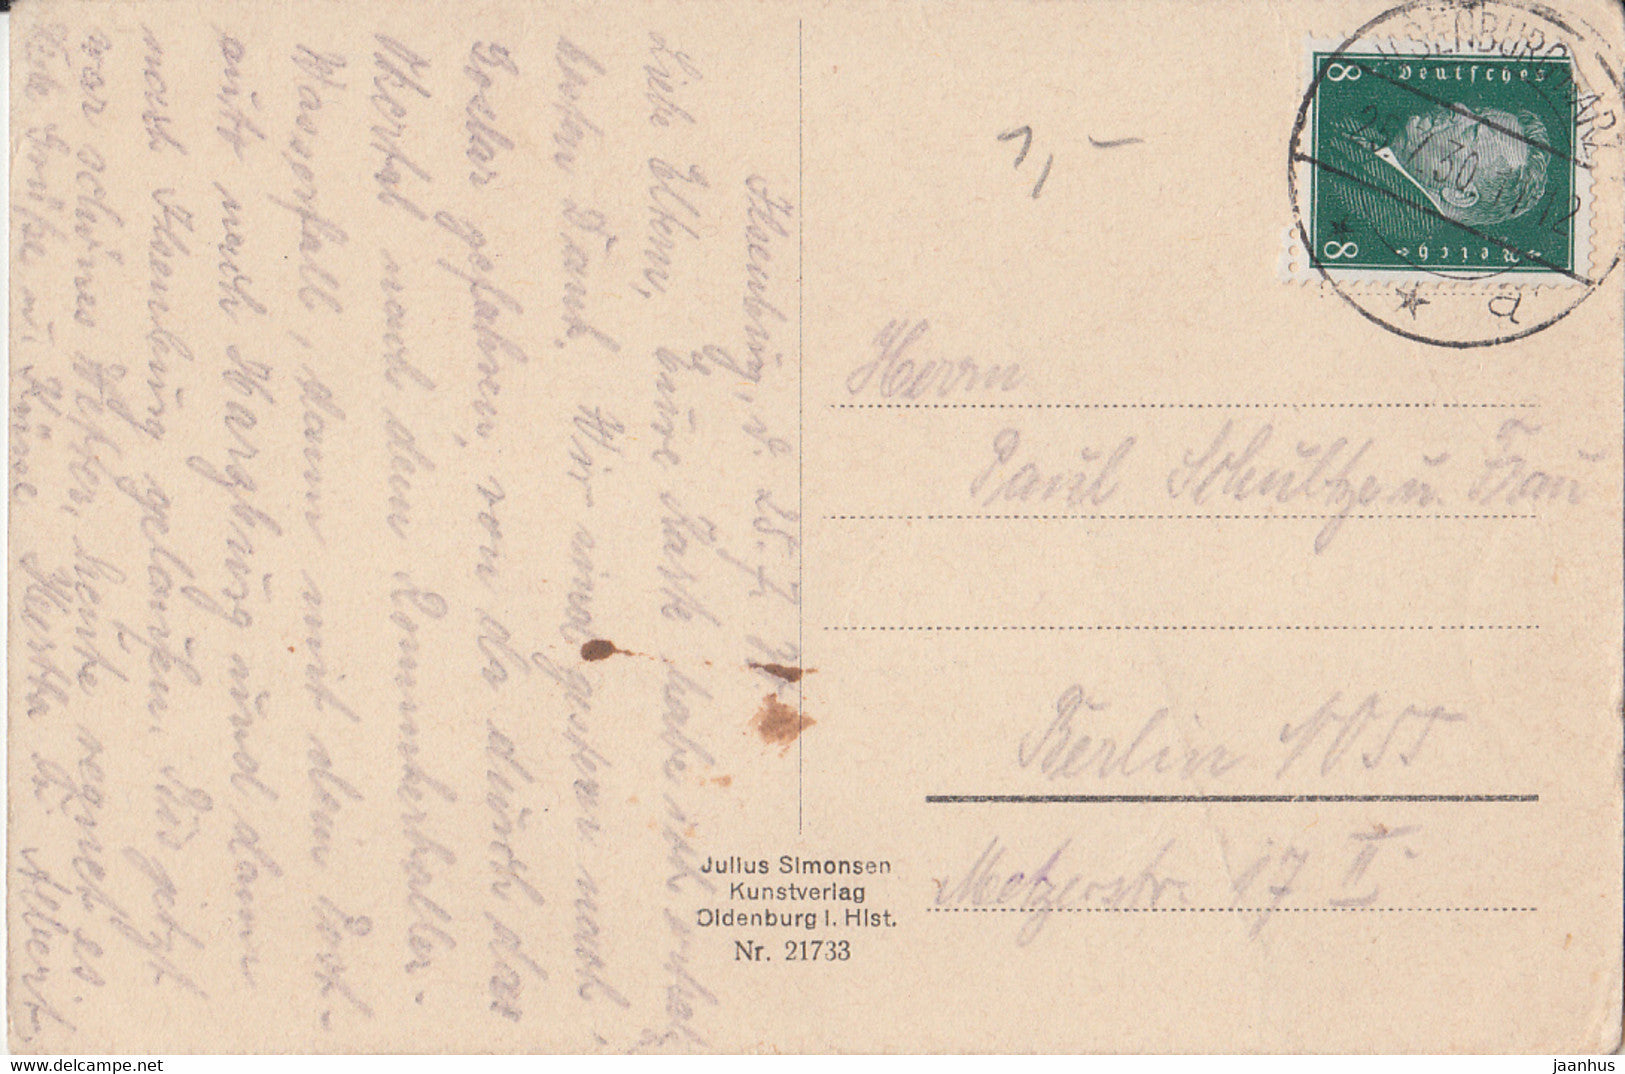 Ilsenburg, d. 25. 7. 30
Liebe Eltern, Eure Karte habe ich erhalten,
besten Dank. Wir sind gestern nach
Goslar gefahren, von da durch das
Okertal nach dem Romkerhaller-
Wasserfall, dann mit dem Post-
auto nach Harzburg und dann
nach Ilsenburg gelaufen. Bis jetzt
war schönes Wetter, heute regnet es.
Viele Grüße u. Küsse Hertha u. Albert.
1,-
ILSENBURG (HARZ)
25.7.30. 11-12
* a
8 Deutsches
8 Reich
Herrn
Paul Schultze u. Frau
Berlin NO55
Metzerstr. 17 II
Julius Simonsen
Kunstverlag
Oldenburg i. Hlst.
Nr. 21733
www.delcampe.net
jaanhus